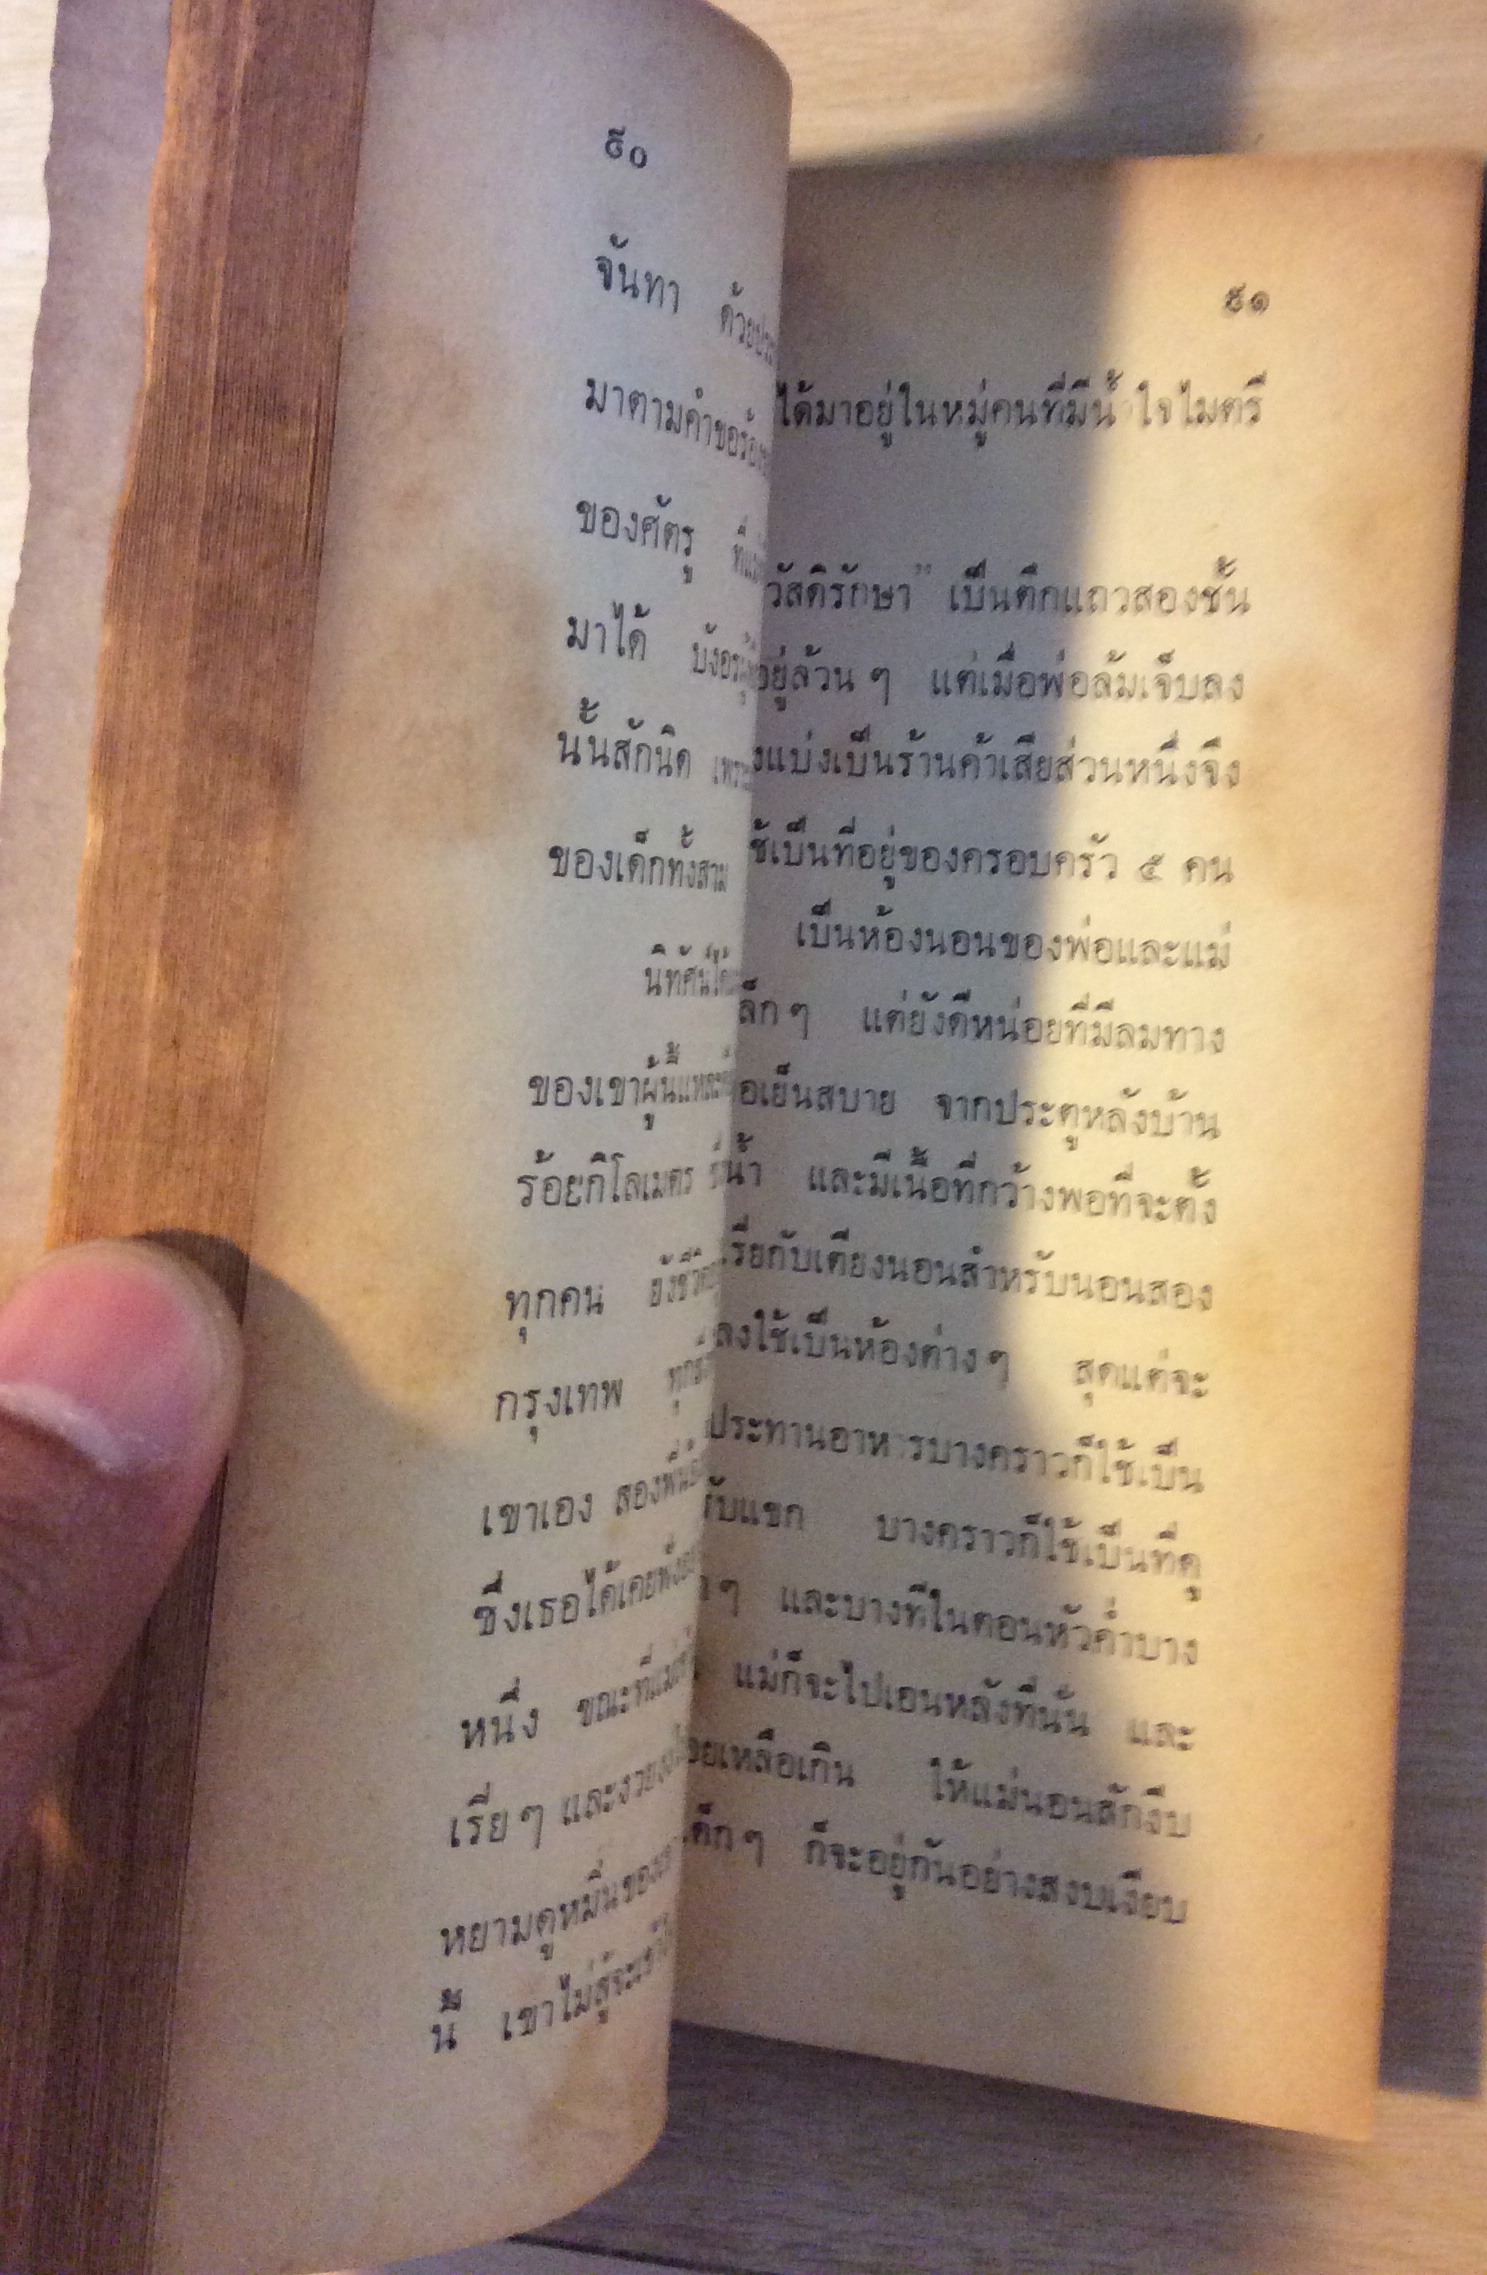 ๘๐
จันทา ด้วย
มาตามคำขอร้อง
ของศัตรู
มาได้ บังอร
นั้นสักนิด เพราะ
ของเด็กทั้งสาม
นิทัศน์ได้
ของเขาผู้นี้แหละ
ร้อยกิโลเมตร
ทุกคน
กรุงเทพ
เขาเอง สองพี่น้อง
ซึ่งเธอได้เคยฟัง
หนึ่ง ขณะที่แม่
เรี่ย ๆ และงวยงง
หยามดูหมิ่นของ
นี้ เขาไม่สู้จะเข้าใจ
๘๑
ได้มาอยู่ในหมู่คนที่มีน้ำใจไมตรี
วัสดิรักษา" เป็นตึกแถวสองชั้น
อยู่ล้วน ๆ แต่เมื่อพ่อล้มเจ็บลง
งแบ่งเป็นร้านค้าเสียส่วนหนึ่งจึง
ช้เป็นที่อยู่ของครอบครัว ๕ คน
เป็นห้องนอนของพ่อและแม่
ล็ก ๆ แต่ยังดีหน่อยที่มีลมทาง
อเย็นสบาย จากประตูหลังบ้าน
น้ำ และมีเนื้อที่กว้างพอที่จะตั้ง
เรียกับเตียงนอนสำหรับนอนสอง
ลงใช้เป็นห้องต่าง ๆ สุดแต่จะ
ประทานอาหารบางคราวก็ใช้เป็น
รับแขก บางคราวก็ใช้เป็นที่ดู
ๆ และบางทีในตอนหัวค่ำบาง
แม่ก็จะไปเอนหลังที่นั้น และ
อยเหลือเกิน ให้แม่นอนสักงีบ
เด็ก ๆ ก็จะอยู่กันอย่างสงบเงียบ